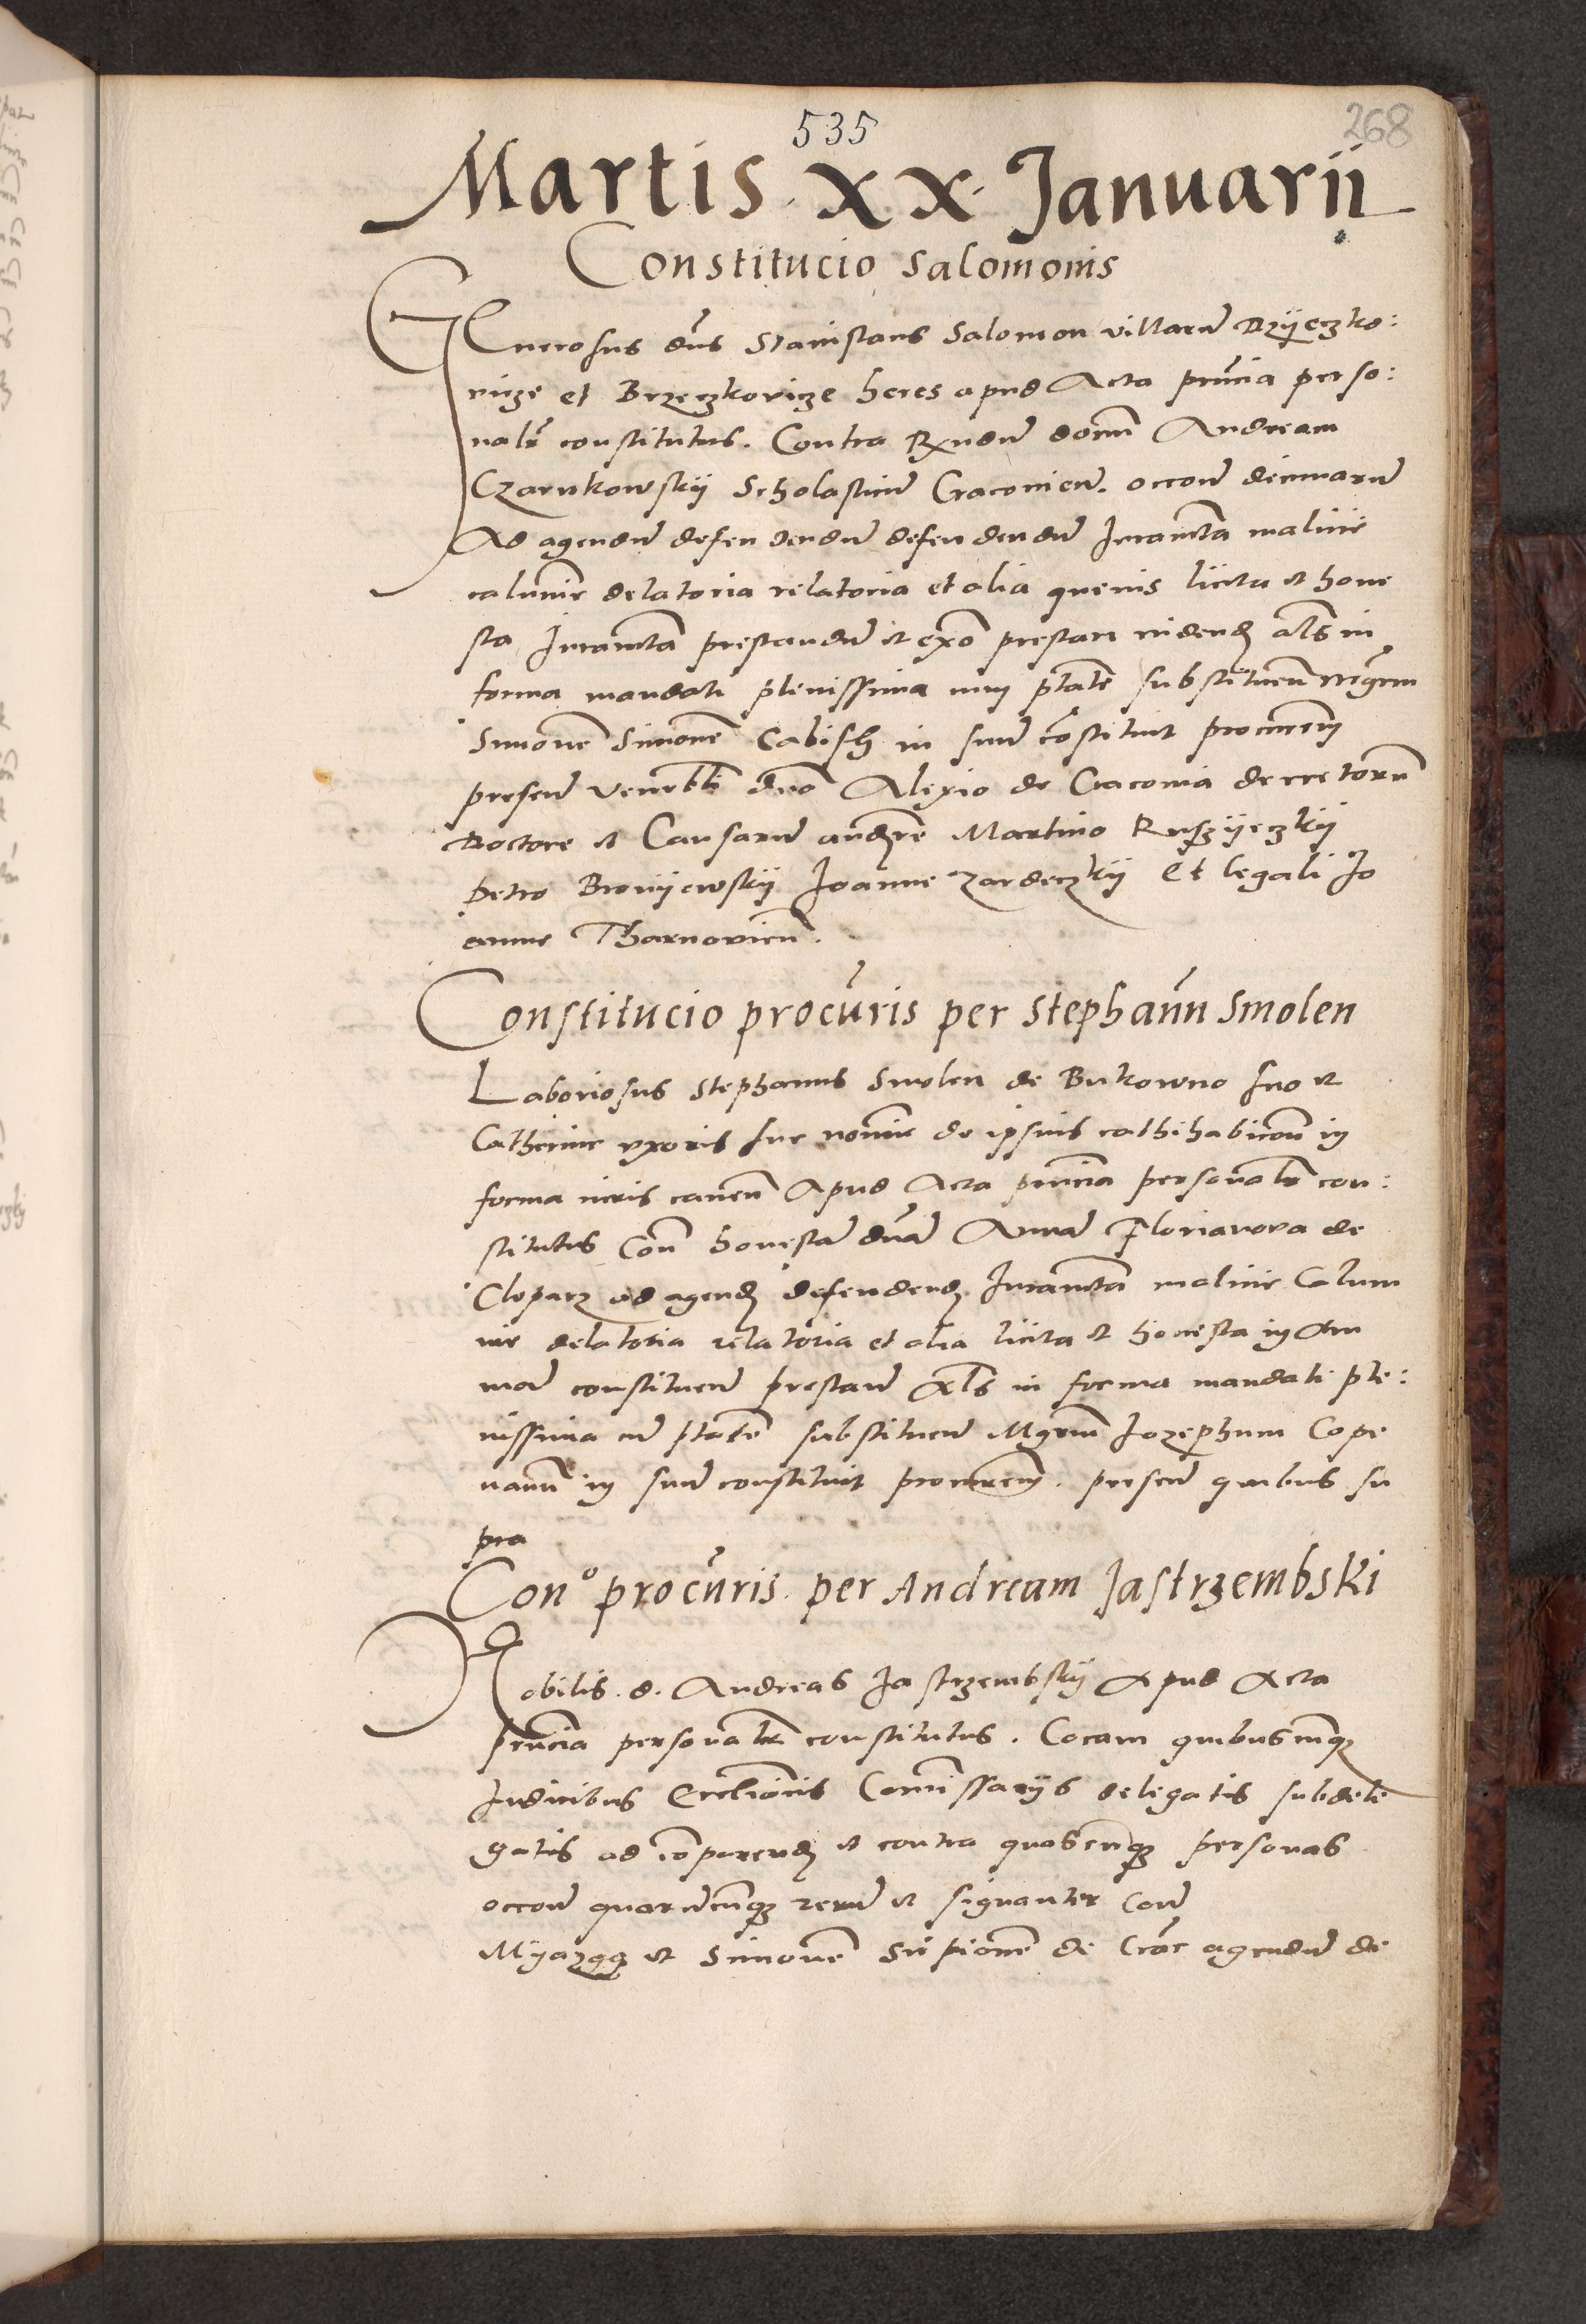 535
268
Martis xx Januarii
Constitucio Salomonis
Generosus dns Stanislaus Salomon villarum Dzyeczko:
vicze et Brzeczkovicze heres apud Acta pntia perso:
nalr constitutus. Contra Rndum domm Andream
Czarnkowskÿ Scholasticum Cracovien. occone decimarum
Ad agendum defendendum defendendum Juramta malicie
calumnie delatoria relatoria et alia quevis licita et hone
sta Juramta prestandum et exo prestari vidend als in
forma mandati plenissima cum ptate substituen mgrum
Simonem Simonem Cabisch in suum constituit procurem
presen venerbli dno Alexio de Cracovia decretorum
Doctore et Causarum audre Martino Ruszÿeczkÿ
Petro Bronÿewskÿ Joanne Zardeczkÿ Et legali Jo
anne Tharnovien.
Constitucio procuris per Stephanum Smolen
Laboriosus Stephanus Smolen de Bukowno suo et
Catherine uxoris sue nomine de ipsius rathihabicone in
forma iuris caven Apud Acta pntia personalr con:
stitutus Con honestam dnam Annam Florianova de
Cleparz ad agend defendend Juramta malicie Calum
nie delatoria relatoria et alia licita et honesta in Ani
mam constituen prestand Als in forma mandati ple:
nissima cum ptate substituen Mgrum Jozephum Cope
nanum in suum constituit procurem. presen quibus su
pra
Con° procuris per Andream Jastrzembski
Nobilis. d. Andreas Jastrzembskÿ Apud Acta
pntia personalr constitutus. Coram quibuscunq
Judicibus Ecclicis Comissarÿs delegatis subdele
gatis ad comparend et contra quascunq personas
occone quarumcunq rerum et signanter Con
et Simonem de Crac agendum de